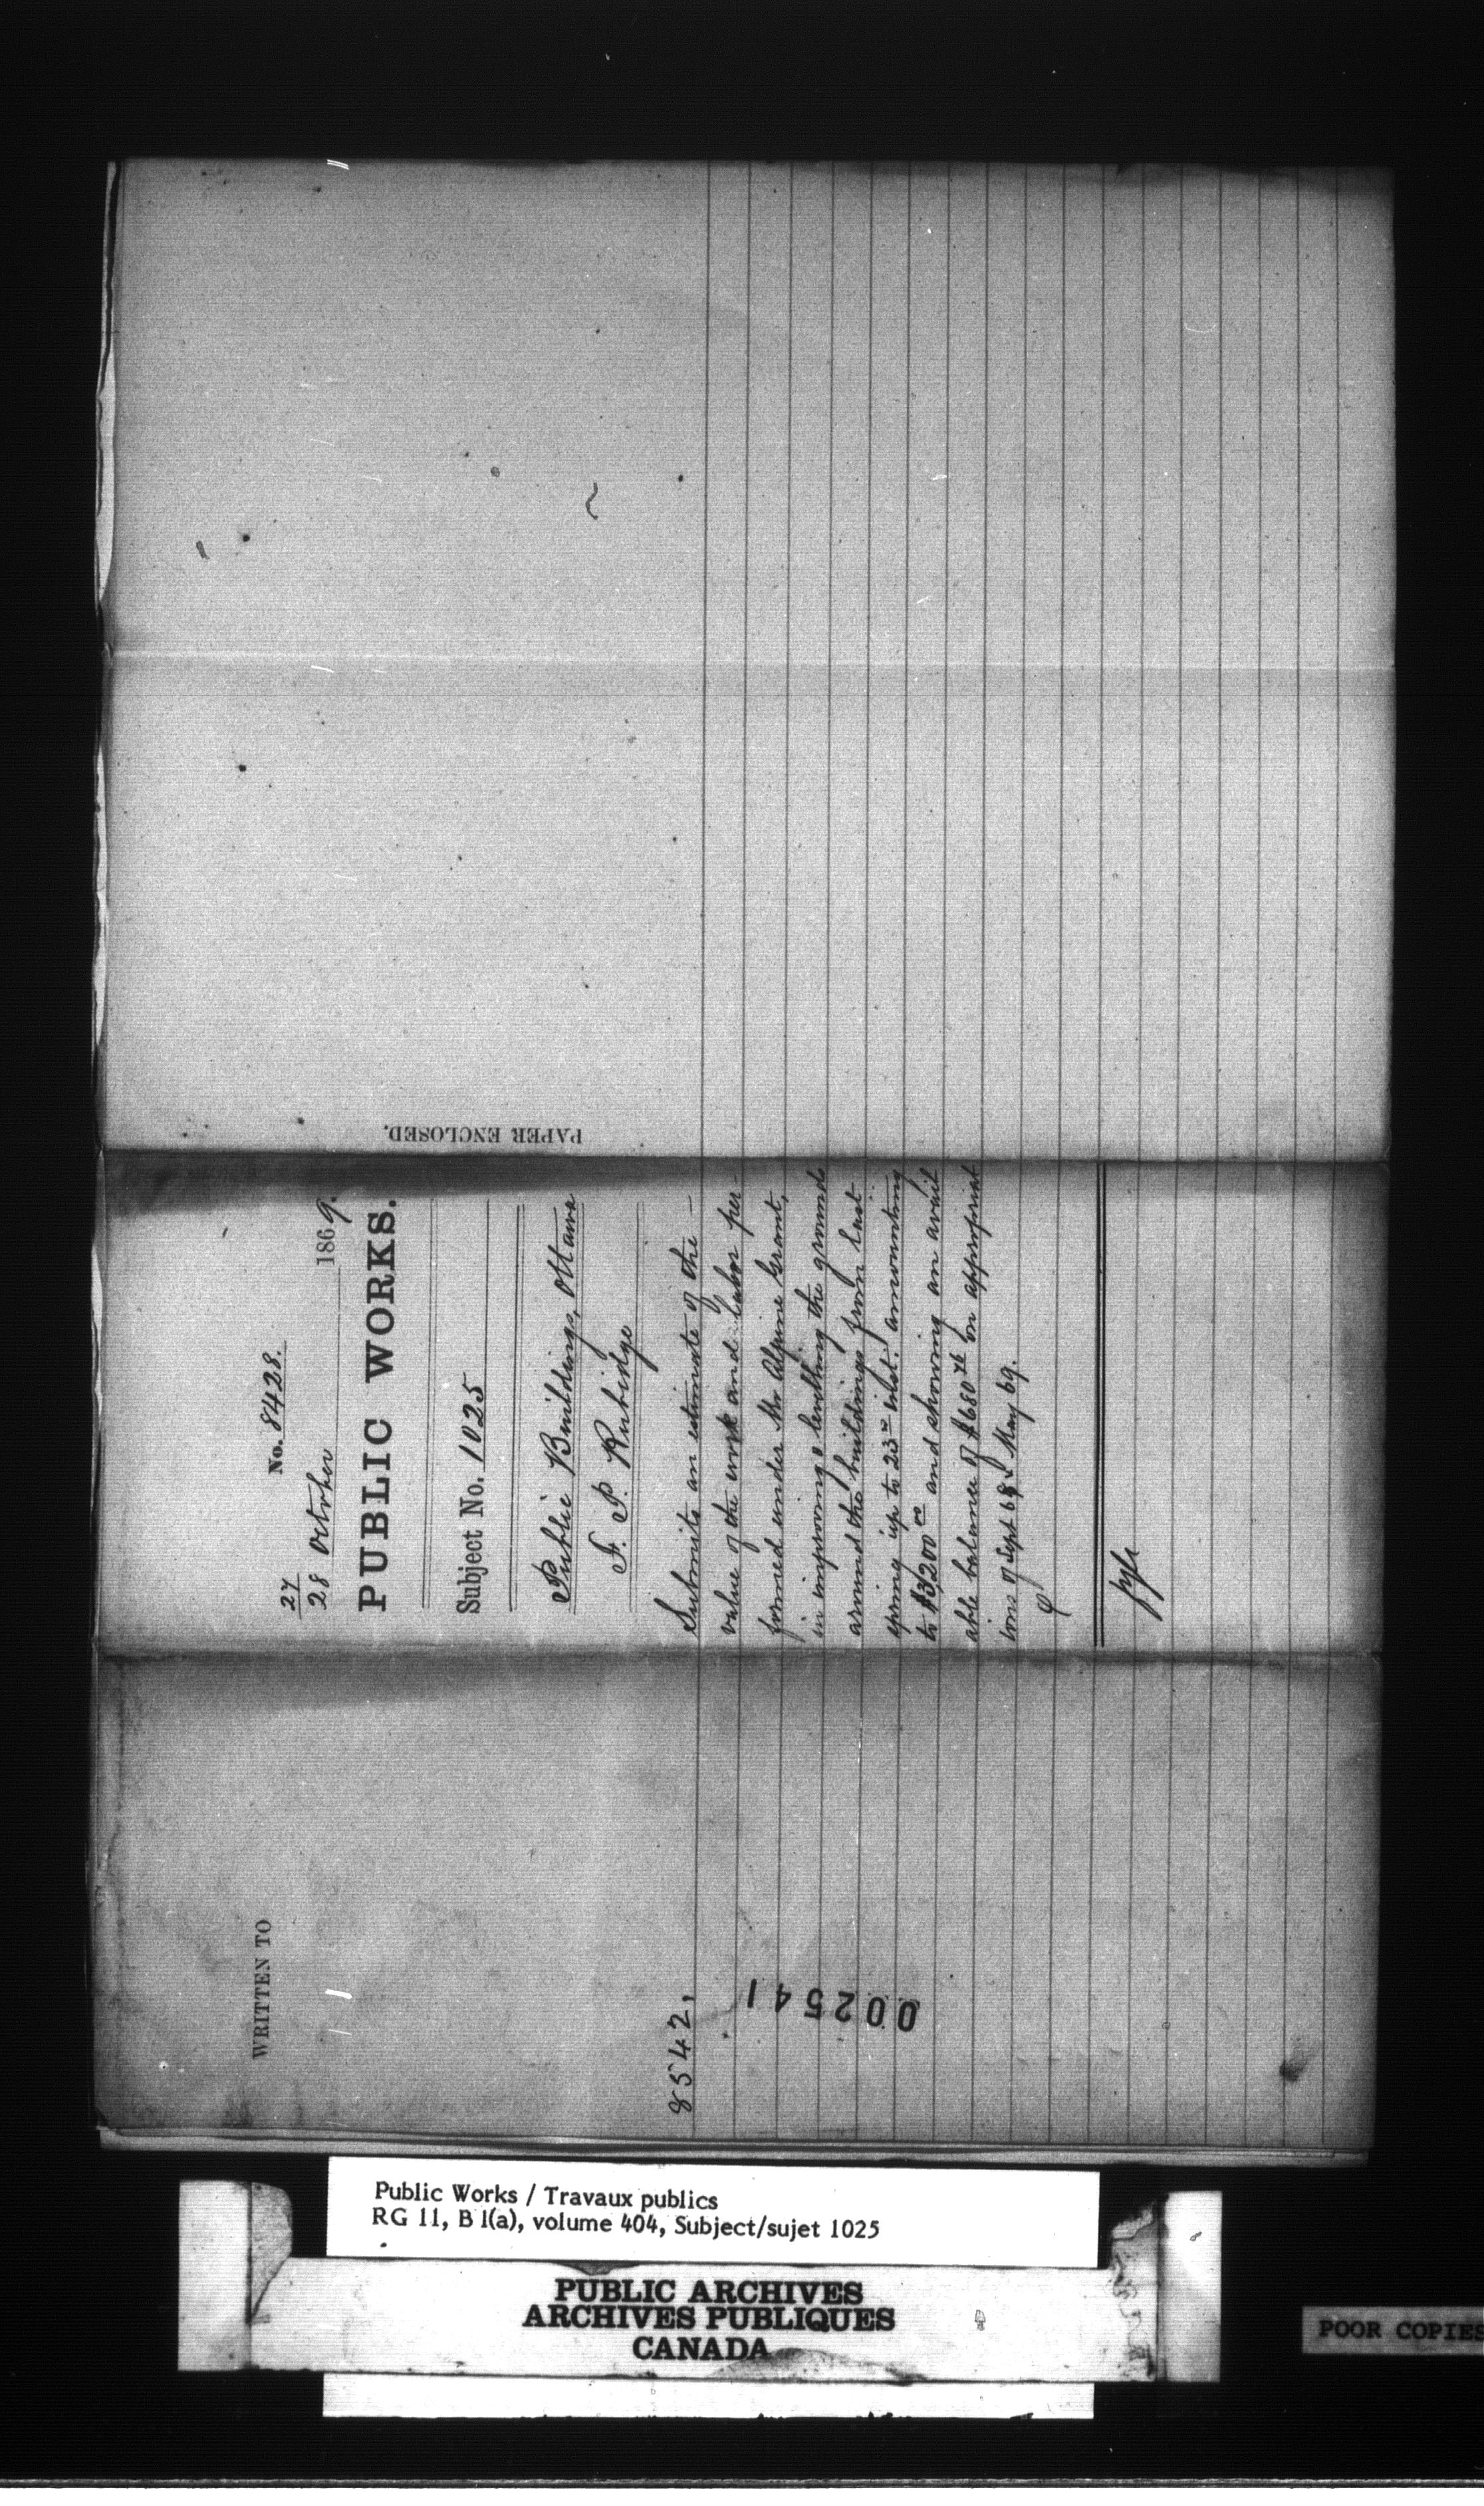 No. 8428.
27
28 October 1869.
PUBLIC WORKS.
Subject No. 1025
Public Buildings, Ottawa
F. P. Rubidge
Submits an estimate of the
value of the work and labor per-
formed under Mr Alpine Grant,
in improving & levelling the grounds
around the buildings from last
spring up to 23rd inst. amounting
to $3,200 00 and showing an avail
able balance of $680 on appropriat
ions of Sept 68 & May 69.
PAPER ENCLOSED.
WRITTEN TO
8542,
002541
Public Works / Travaux publics
RG 11, B 1(a), volume 404, Subject/sujet 1025
PUBLIC ARCHIVES
ARCHIVES PUBLIQUES
CANADA
POOR COPIES